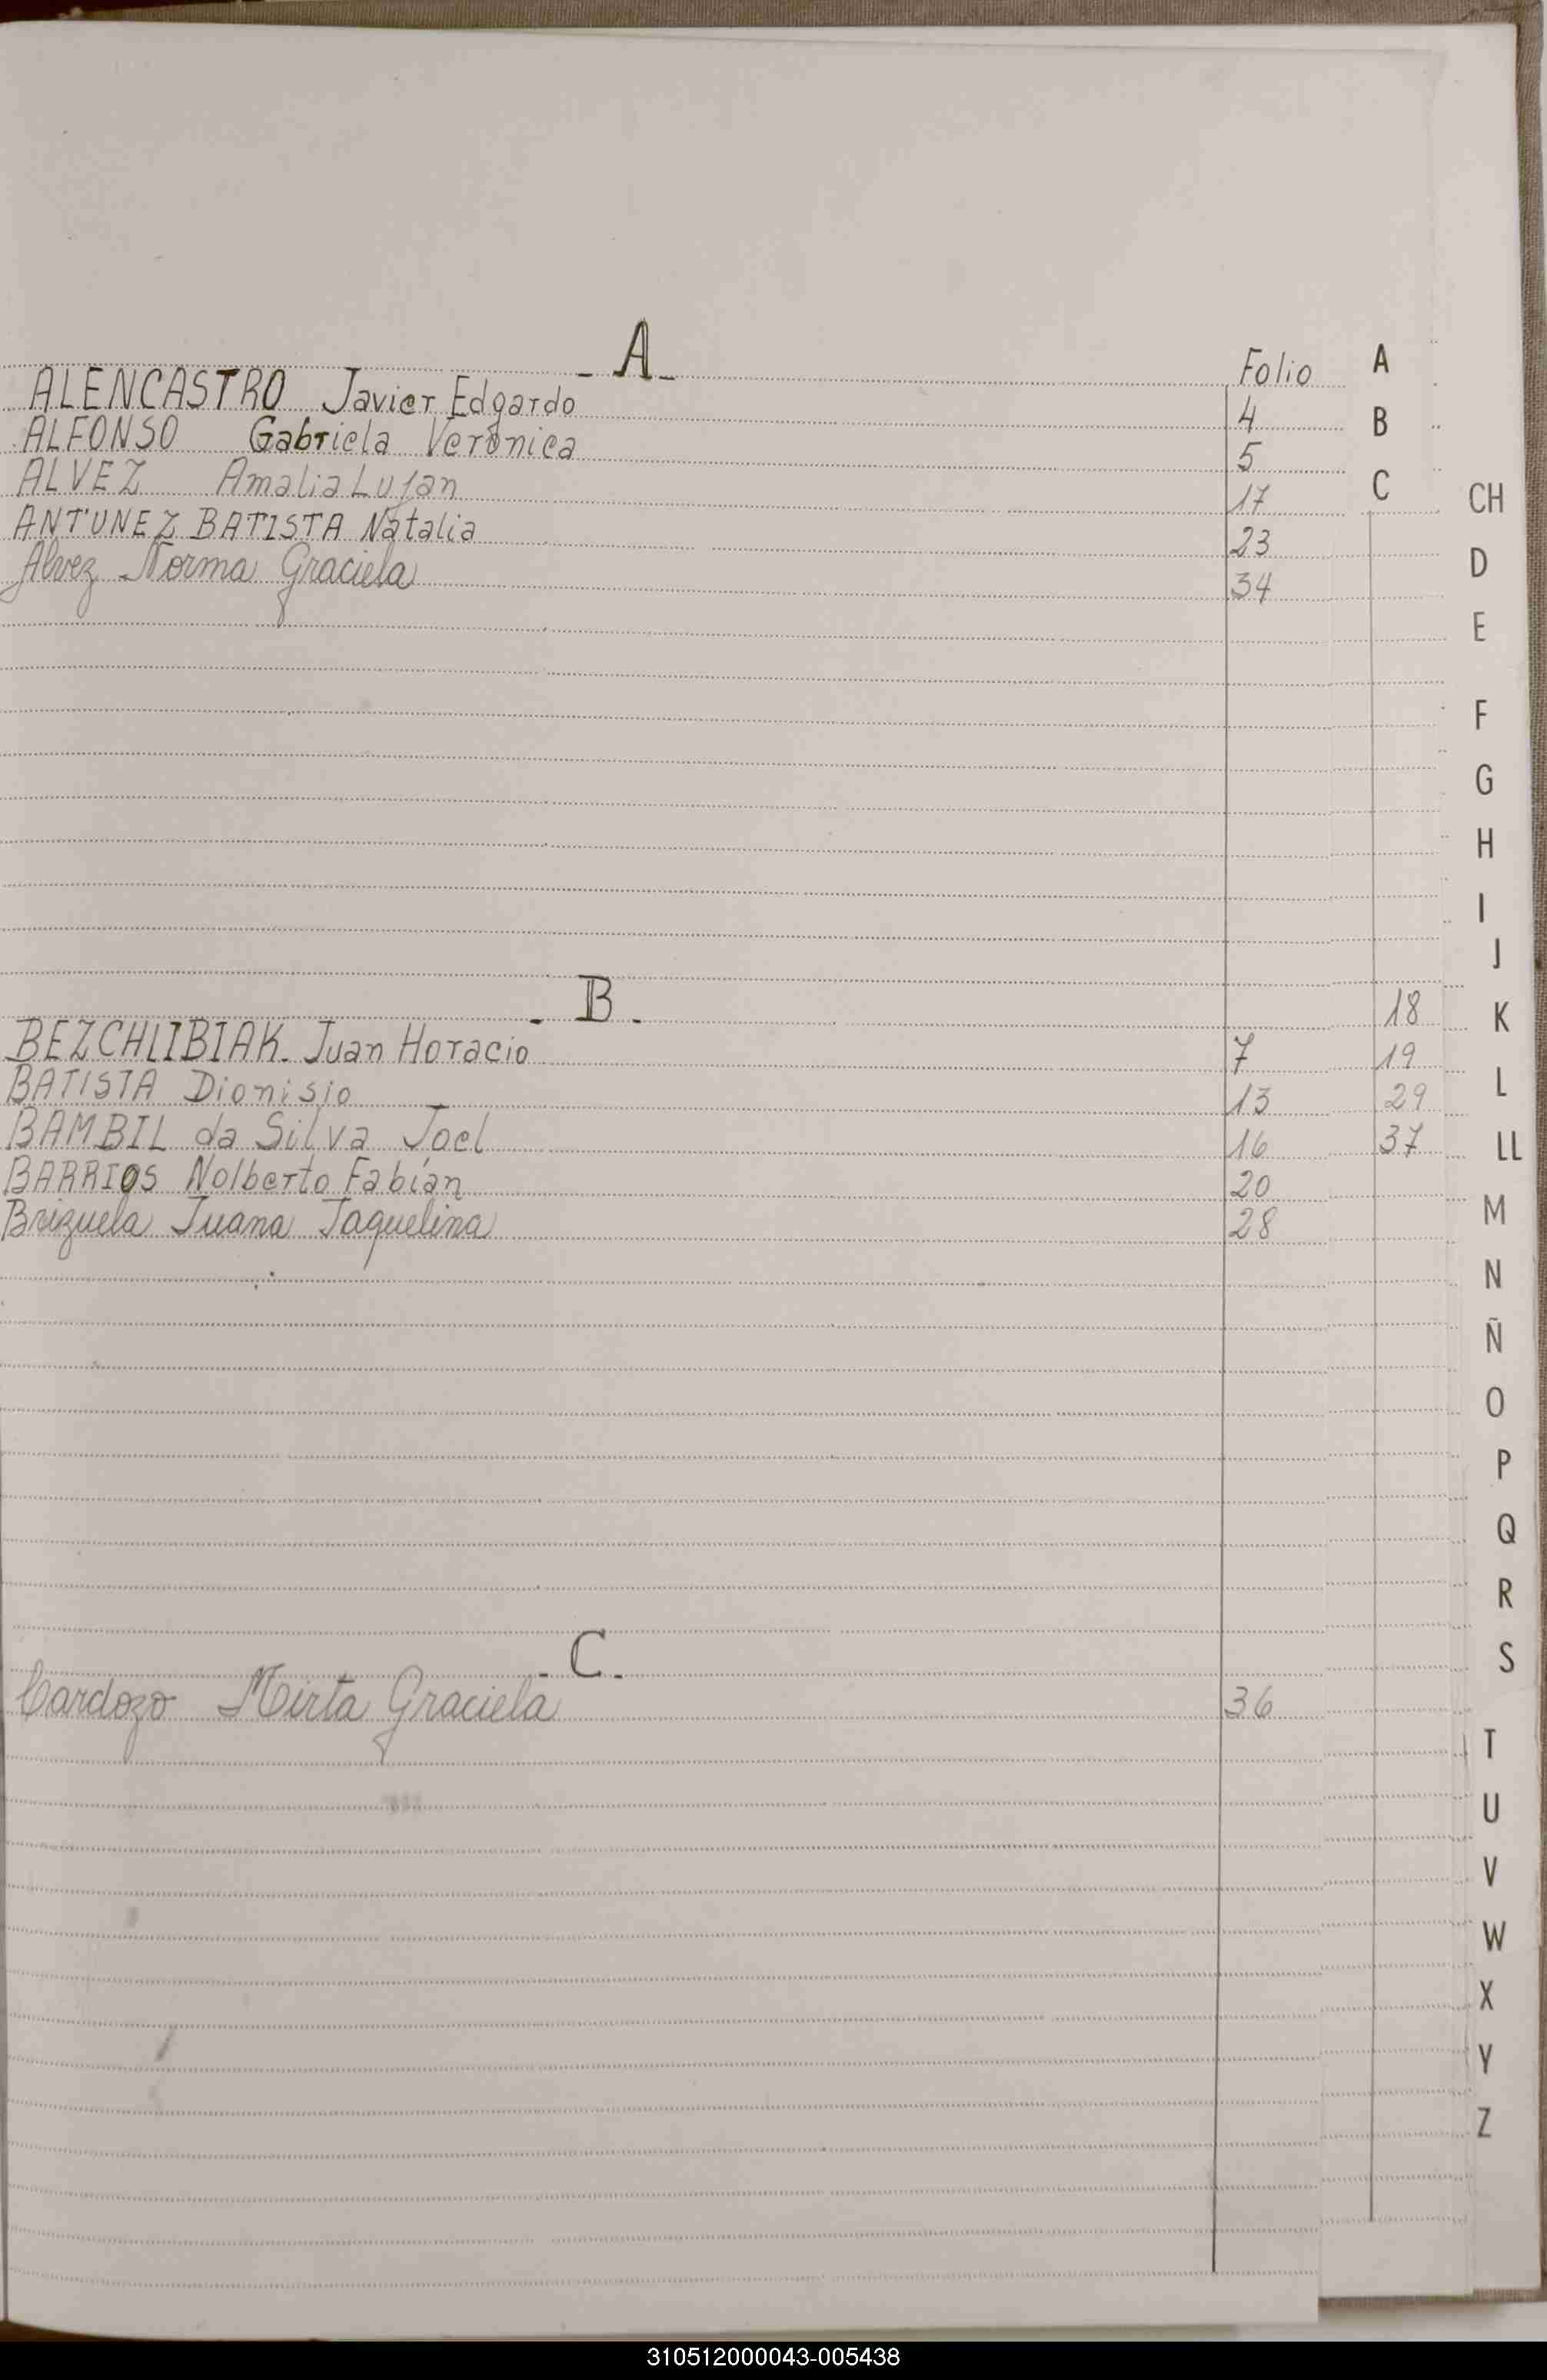 - A -
Folio
ALENCASTRO Javier Edgardo 4
ALFONSO Gabriela Verónica 5
ALVEZ Amalia Luján 17
ANTUNEZ BATISTA Natalia 23
Alvez Norma Graciela 34
- B -
18
BEZCHLIBIAK Juan Horacio 7 19
BATISTA Dionisio 13 29
BAMBIL da Silva Joel 16 37
BARRIOS Nolberto Fabián 20
Brizuela Juana Jaquelina 28
- C -
Cardozo Mirta Graciela 36
A
B
C
CH
D
E
F
G
H
I
J
K
L
LL
M
N
Ñ
O
P
Q
R
S
T
U
V
W
X
Y
Z
310512000043-005438